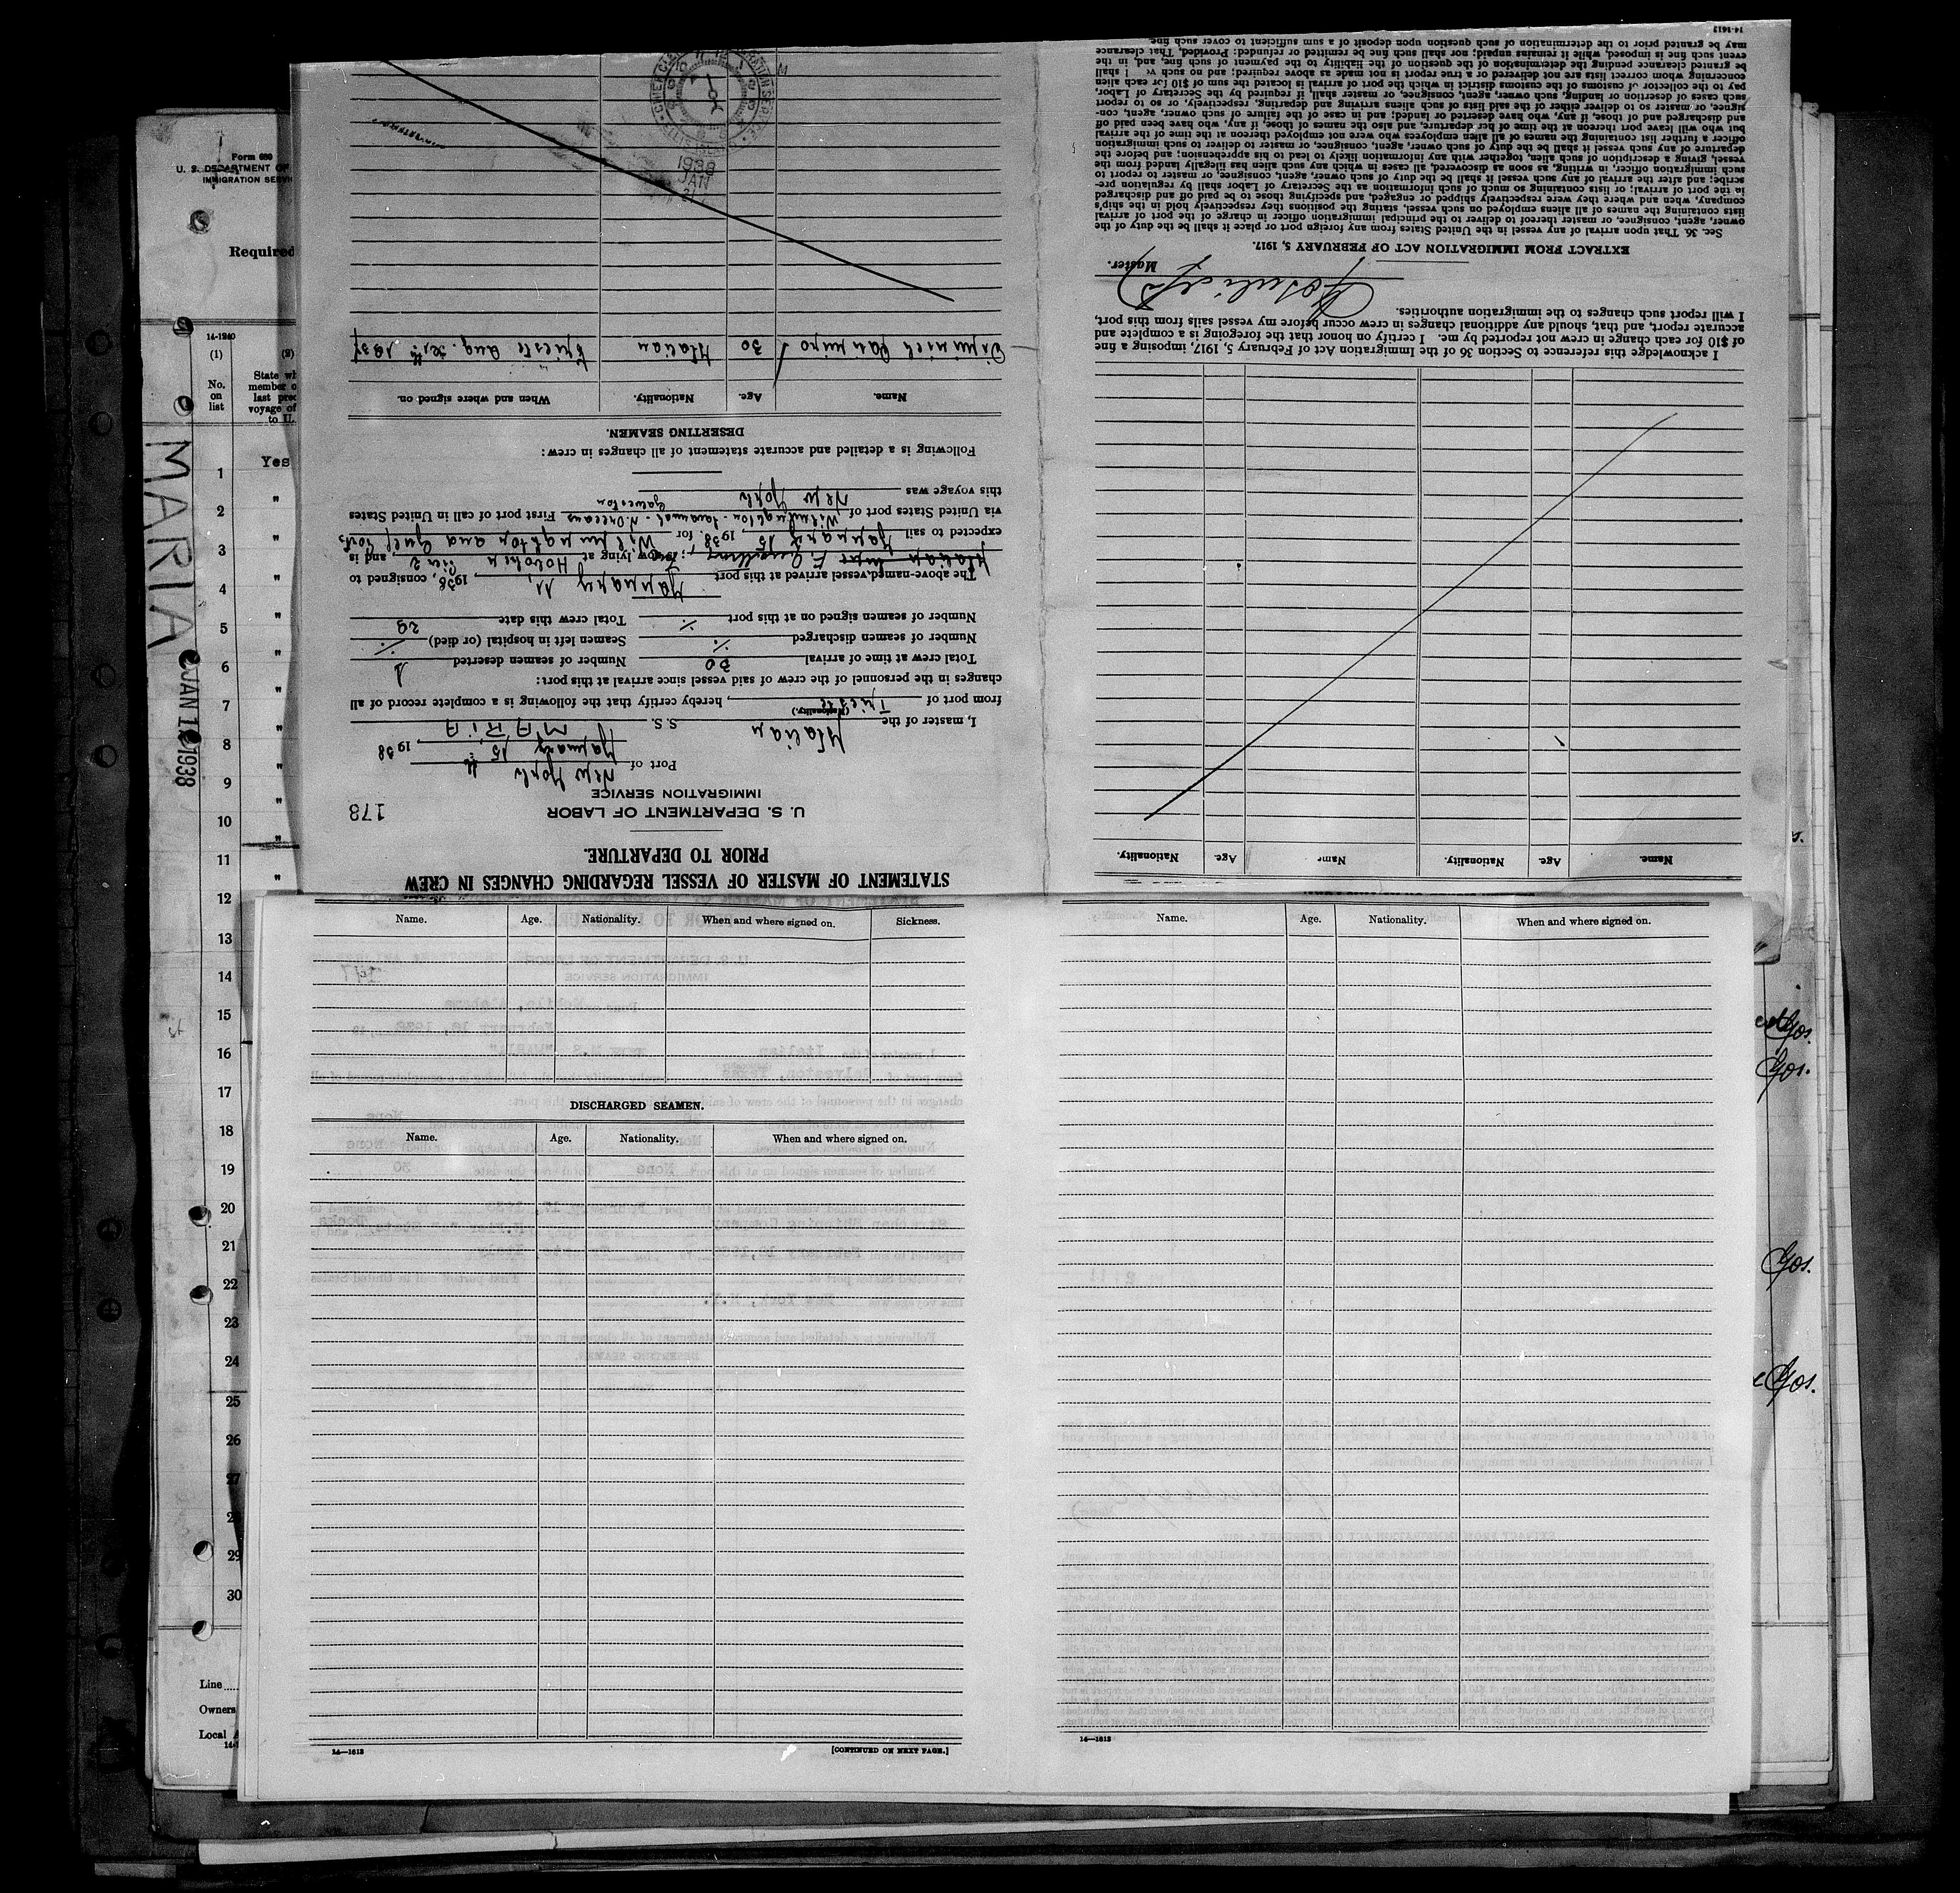 Form 680
U. S. DEPARTMENT OF
IMMIGRATION SERVI
Required
14-1240
(1)
(2)
No.
on
list
State wh
member o
last prec
voyage of
to U.
Yes
MARIA
JAN 1 1938
1
2
3
4
5
6
7
8
9
10
11
12
13
14
15
16
17
18
19
20
21
22
23
24
25
26
27
28
29
30
Line
Owners
Local A
STATEMENT OF MASTER OF VESSEL REGARDING CHANGES IN CREW
PRIOR TO DEPARTURE.
U. S. DEPARTMENT OF LABOR
173
IMMIGRATION SERVICE
Port of New York
January 15th, 1938
I, master of the Italian S. S. MARIA
(Nationality.)
from port of Trieste, hereby certify that the following is a complete record of all
changes in the personnel of the crew of said vessel since arrival at this port:
Total crew at time of arrival 30 Number of seamen deserted 1
Number of seamen discharged ·/. Seamen left in hospital (or died) ·/.
Number of seamen signed on at this port ·/. Total crew this date 29
The above-named vessel arrived at this port January 11, 1938, consigned to
Italian now lying at Hoboken Pier 2, and is
expected to sail January 15, 1938, for Wilmington and Gulf Ports
via United States port of Wilmington - Savannah - N Orleans Galveston First port of call in United States
this voyage was New York
Following is a detailed and accurate statement of all changes in crew:
DESERTING SEAMEN.
Name. Age. Nationality. When and where signed on.
30 Italian Trieste Aug. 1937
1938
JAN
Name. Age. Nationality. Name Age. Nationality.
I acknowledge this reference to Section 36 of the Immigration Act of February 5, 1917, imposing a fine
of $10 for each change in crew not reported by me. I certify on honor that the foregoing is a complete and
accurate report, and that, should any additional changes in crew occur before my vessel sails from this port,
I will report such changes to the immigration authorities.
Master.
EXTRACT FROM IMMIGRATION ACT OF FEBRUARY 5, 1917.
Sec. 36. That upon arrival of any vessel in the United States from any foreign port or place it shall be the duty of the
owner, agent, consignee, or master thereof to deliver to the principal immigration officer in charge of the port of arrival
lists containing the names of all aliens employed on such vessel, stating the positions they respectively hold in the ship's
company, when and where they were respectively shipped or engaged, and specifying those to be paid off and discharged
in the port of arrival; or lists containing so much of such information as the Secretary of Labor shall by regulation pre-
scribe; and after the arrival of any such vessel it shall be the duty of such owner, agent, consignee, or master to report to
such immigration officer, in writing, as soon as discovered, all cases in which any such alien has illegally landed from the
vessel, giving a description of such alien, together with any information likely to lead to his apprehension; and before the
departure of any such vessel it shall be the duty of such owner, agent, consignee, or master to deliver to such immigration
officer a further list containing the names of all alien employees who were not employed thereon at the time of the arrival
but who will leave port thereon at the time of her departure, and also the names of those, if any, who have been paid off
and discharged and of those, if any, who have deserted or landed; and in case of the failure of such owner, agent, con-
signee, or master so to deliver either of the said lists of such aliens arriving and departing, respectively, or so to report
such cases of desertion or landing, such owner, agent, consignee, or master shall, if required by the Secretary of Labor,
pay to the collector of customs of the customs district in which the port of arrival is located the sum of $10 for each alien
concerning whom correct lists are not delivered or a true report is not made as above required; and no such v l shall
be granted clearance pending the determination of the question of the liability to the payment of such fine, and, in the
event such fine is imposed, while it remains unpaid; nor shall such fine be remitted or refunded: Provided, That clearance
may be granted prior to the determination of such question upon deposit of a sum sufficient to cover such fine.
14-1612
Name. Age. Nationality. When and where signed on. Sickness.
DISCHARGED SEAMEN.
Name. Age. Nationality. When and where signed on.
14—1613
[CONTINUED ON NEXT PAGE.]
Name. Age. Nationality. When and where signed on.
14—1613
Gos.
Gos.
Gos.
Gos.